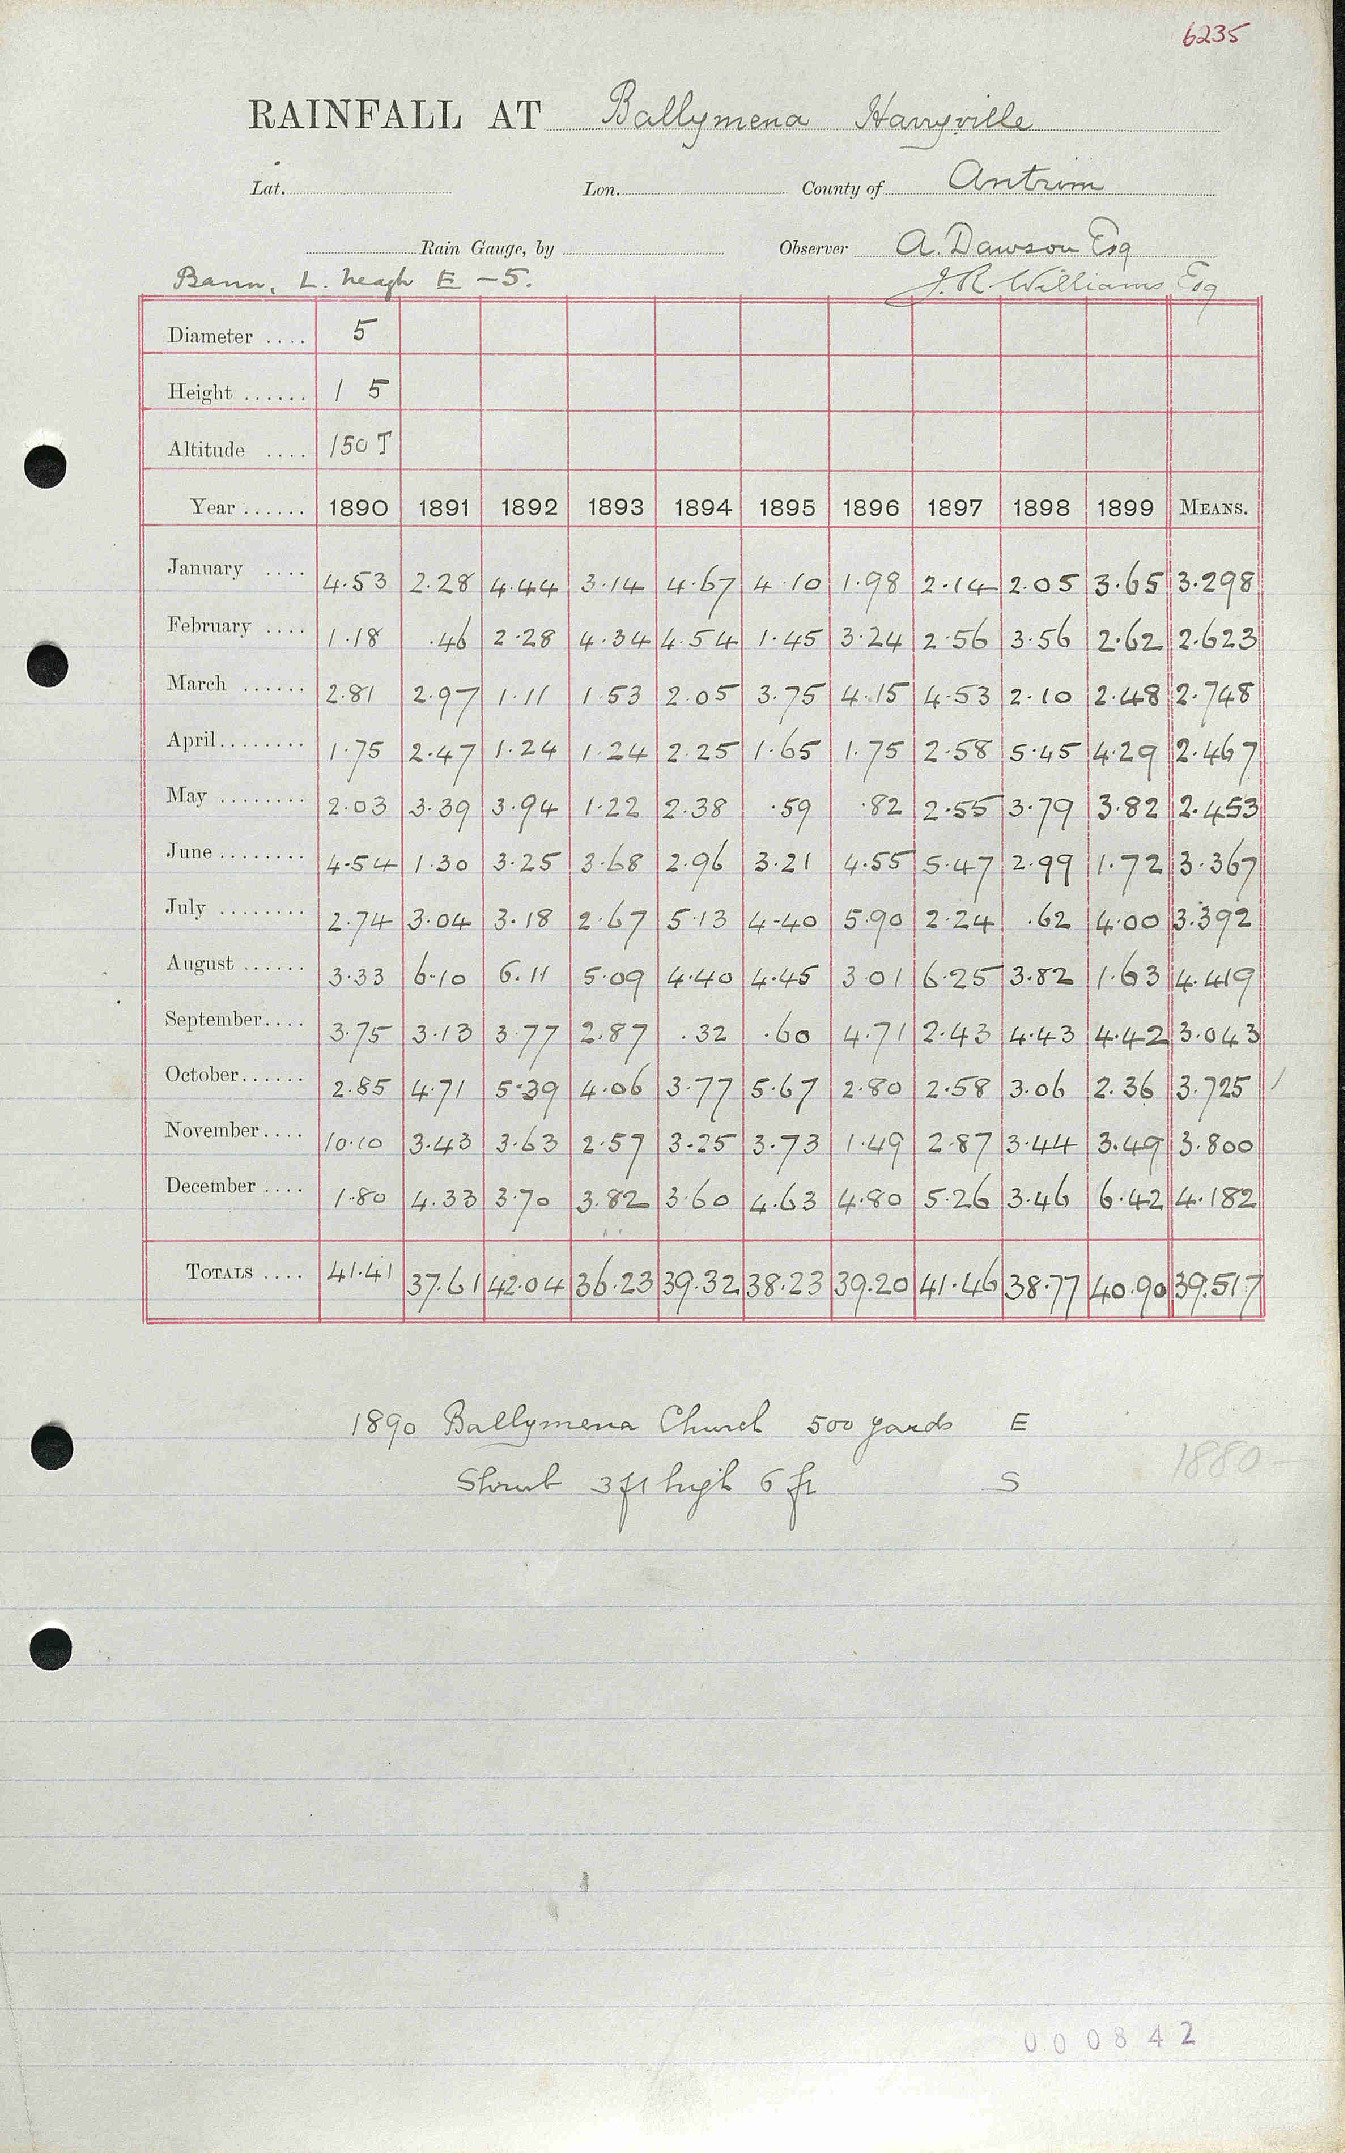 6235
RAINFALL AT Ballymena Harryville
Lat. Lon. County of Antrim
Rain Gauge, by Observer A. Dawson Esq
Bann, L. Neagh E - 5. J. R. Williams Esq
Diameter .... 5
Height ...... 1 5
Altitude .... 150 T
Year ...... 1890 1891 1892 1893 1894 1895 1896 1897 1898 1899 MEANS.
January .... 4.53 2.28 4.44 3.14 4.67 4.10 1.98 2.14 2.05 3.65 3.298
February .... 1.18 .46 2.28 4.34 4.54 1.45 3.24 2.56 3.56 2.62 2.623
March ...... 2.81 2.97 1.11 1.53 2.05 3.75 4.15 4.53 2.10 2.48 2.748
April........ 1.75 2.47 1.24 1.24 2.25 1.65 1.75 2.58 5.45 4.29 2.467
May ........ 2.03 3.39 3.94 1.22 2.38 .59 .82 2.55 3.79 3.82 2.453
June ........ 4.54 1.30 3.25 3.68 2.96 3.21 4.55 5.47 2.99 1.72 3.367
July ........ 2.74 3.04 3.18 2.67 5.13 4.40 5.90 2.24 .62 4.00 3.392
August ...... 3.33 6.10 6.11 5.09 4.40 4.45 3.01 6.25 3.82 1.63 4.419
September.... 3.75 3.13 3.77 2.87 .32 .60 4.71 2.43 4.43 4.42 3.043
October...... 2.85 4.71 5.39 4.06 3.77 5.67 2.80 2.58 3.06 2.36 3.725 /
November.... 10.10 3.43 3.63 2.57 3.25 3.73 1.49 2.87 3.44 3.49 3.800
December .... 1.80 4.33 3.70 3.82 3.60 4.63 4.80 5.26 3.46 6.42 4.182
TOTALS .... 41.41 37.61 42.04 36.23 39.32 38.23 39.20 41.46 38.77 40.90 39.517
1890 Ballymena Church 500 yards E
1880 -
Shrub 3 ft high 6 ft S
000842